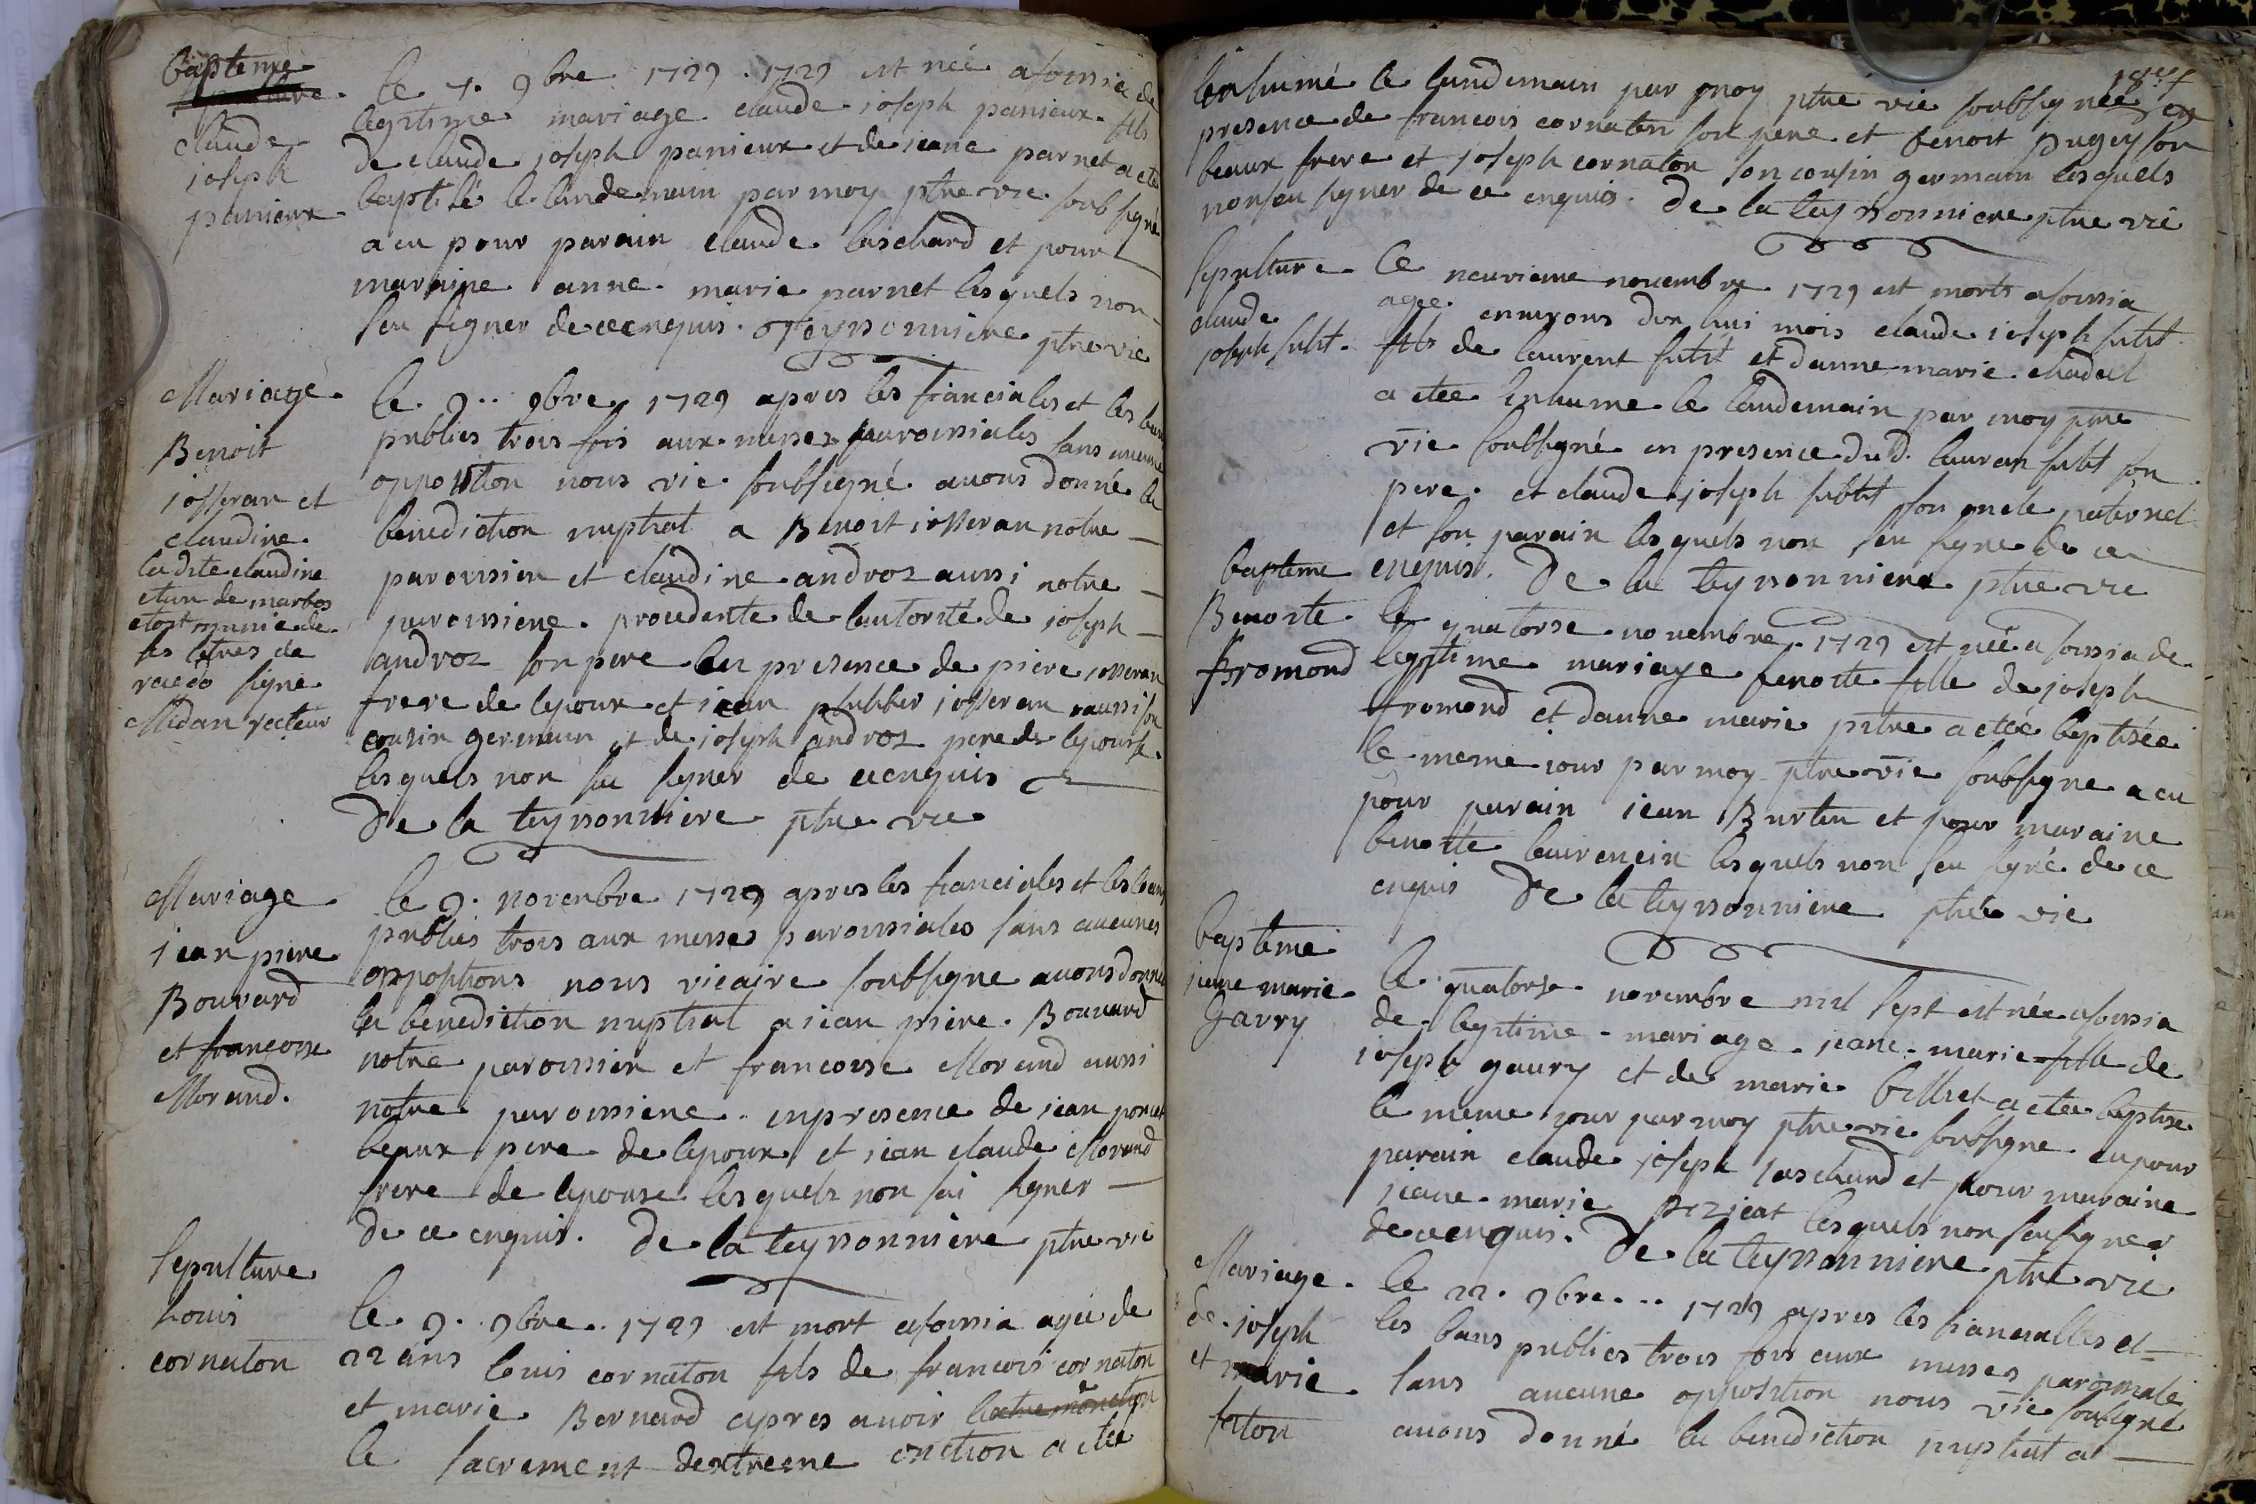 bapteme
claude
joseph
panieux
le 7. 9bre 1729. 1729 est née a foissia de
legitime mariage claude joseph panieux fils
de claude joseph panieux et de jeane parnet a eté
baptisé le landemain par moy ptre vic soubsigné
a eu pour parain claude laschard et pour
maraine anne marie parnet lesquels non
seu signer de ce enquis. De la teyssonniere ptre vic
Mariage
Benoit
josseran et
claudine
la dite claudine
etan de marbos
etoit munie de
ses letres de
signé
Midan recteur
le 9.. 9bre 1729 apres les fiancialles et les bans
publies trois fois aux messes parroissiales sans aucune
opposition nous vic soubsigné avons donné la
benediction nuptial a Benoit josseran notre
paroissien et claudine androz aussi notre
paroissiene procedente de lautorité de joseph
androz son pere en presence de piere josseran
frere de lepoux et jean philiber josseran aussi son
cousin germain et de joseph androz pere de lepouse
lesquels non su signer de ce enquis
De la teyssonniere ptre vic
Mariage
jean piere
Bouvard
et francoise
Morand.
le 9. novenbre 1729 apres les francialles et les bans
publies trois aux messes paroissiales sans aucunes
oppositions nous vicaire soubsigne avons donné
la benediction nuptial a jean piere Bouvard
notre paroissien et francoise Morand aussi
notre paroissiene en presence de jean poncet
beaux pere de lepoux et jean claude Morand
frere de lepouse lesquels non sui signer
de ce enquis. De la teyssonniere ptre vic
sepulture
Louis
cornaton
le 9. 9bre. 1729 est mort a foissia agée de
22 ans louis cornaton fils de francois cornaton
et marie Bernard apres avoir
le sacrement dextreme onction a etee
Enhumé le landemain par moy ptre vic soubsignée en
presence de francois cornaton son pere et benoit pugey son
beaux frere et joseph cornaton son cousin germain lesquels
non seu signer de ce enquis. De la teyssonniere ptre vic
sepulture
claude
joseph subit
le neuvieme novembre 1729 est morts a foissia
agee environs dun hui mois claude joseph subit
fils de laurent subit et danne marie chadel
a etee Enhume le landemain par moy ptre
vic soubsigné en presence dud. lauran subit son
pere et claude joseph subit son oncle paternel
et son parain lesquels non seu signe de ce
enquis. De la teyssonniere ptre vic
bapteme
Benoite
fromond
le quatorse novembre 1729 est née a foissia de
legitime mariage benoite fille de joseph
fromond et danne marie pitre a eteé baptisée
le meme jour par moy ptre vic soubsigne a eu
pour parain jean Burtin et pour maraine
benoite laurencin lesquels non seu signé de ce
enquis De la teyssonniere ptre vic
bapteme
jeane marie
Gavry
le quatorse novembre mil sept est née a foissia
de legitime mariage jeane marie fille de
joseph gaury et de marie billiet a etee baptise
le meme jour par moy ptre vic soubsigne eu pour
parain claude joseph laschard et pour maraine
jeane marie perieat lesquels non seu signer
de ce enquis. De la teyssonniere ptre vic
Mariage
de joseph
et marie
le 22. 9bre... 1729 apres les fiancialles et
les bans publies trois fois aux messes paroissiale
sans aucune opposition nous vic soubsigné
avons donné la benediction nuptial a